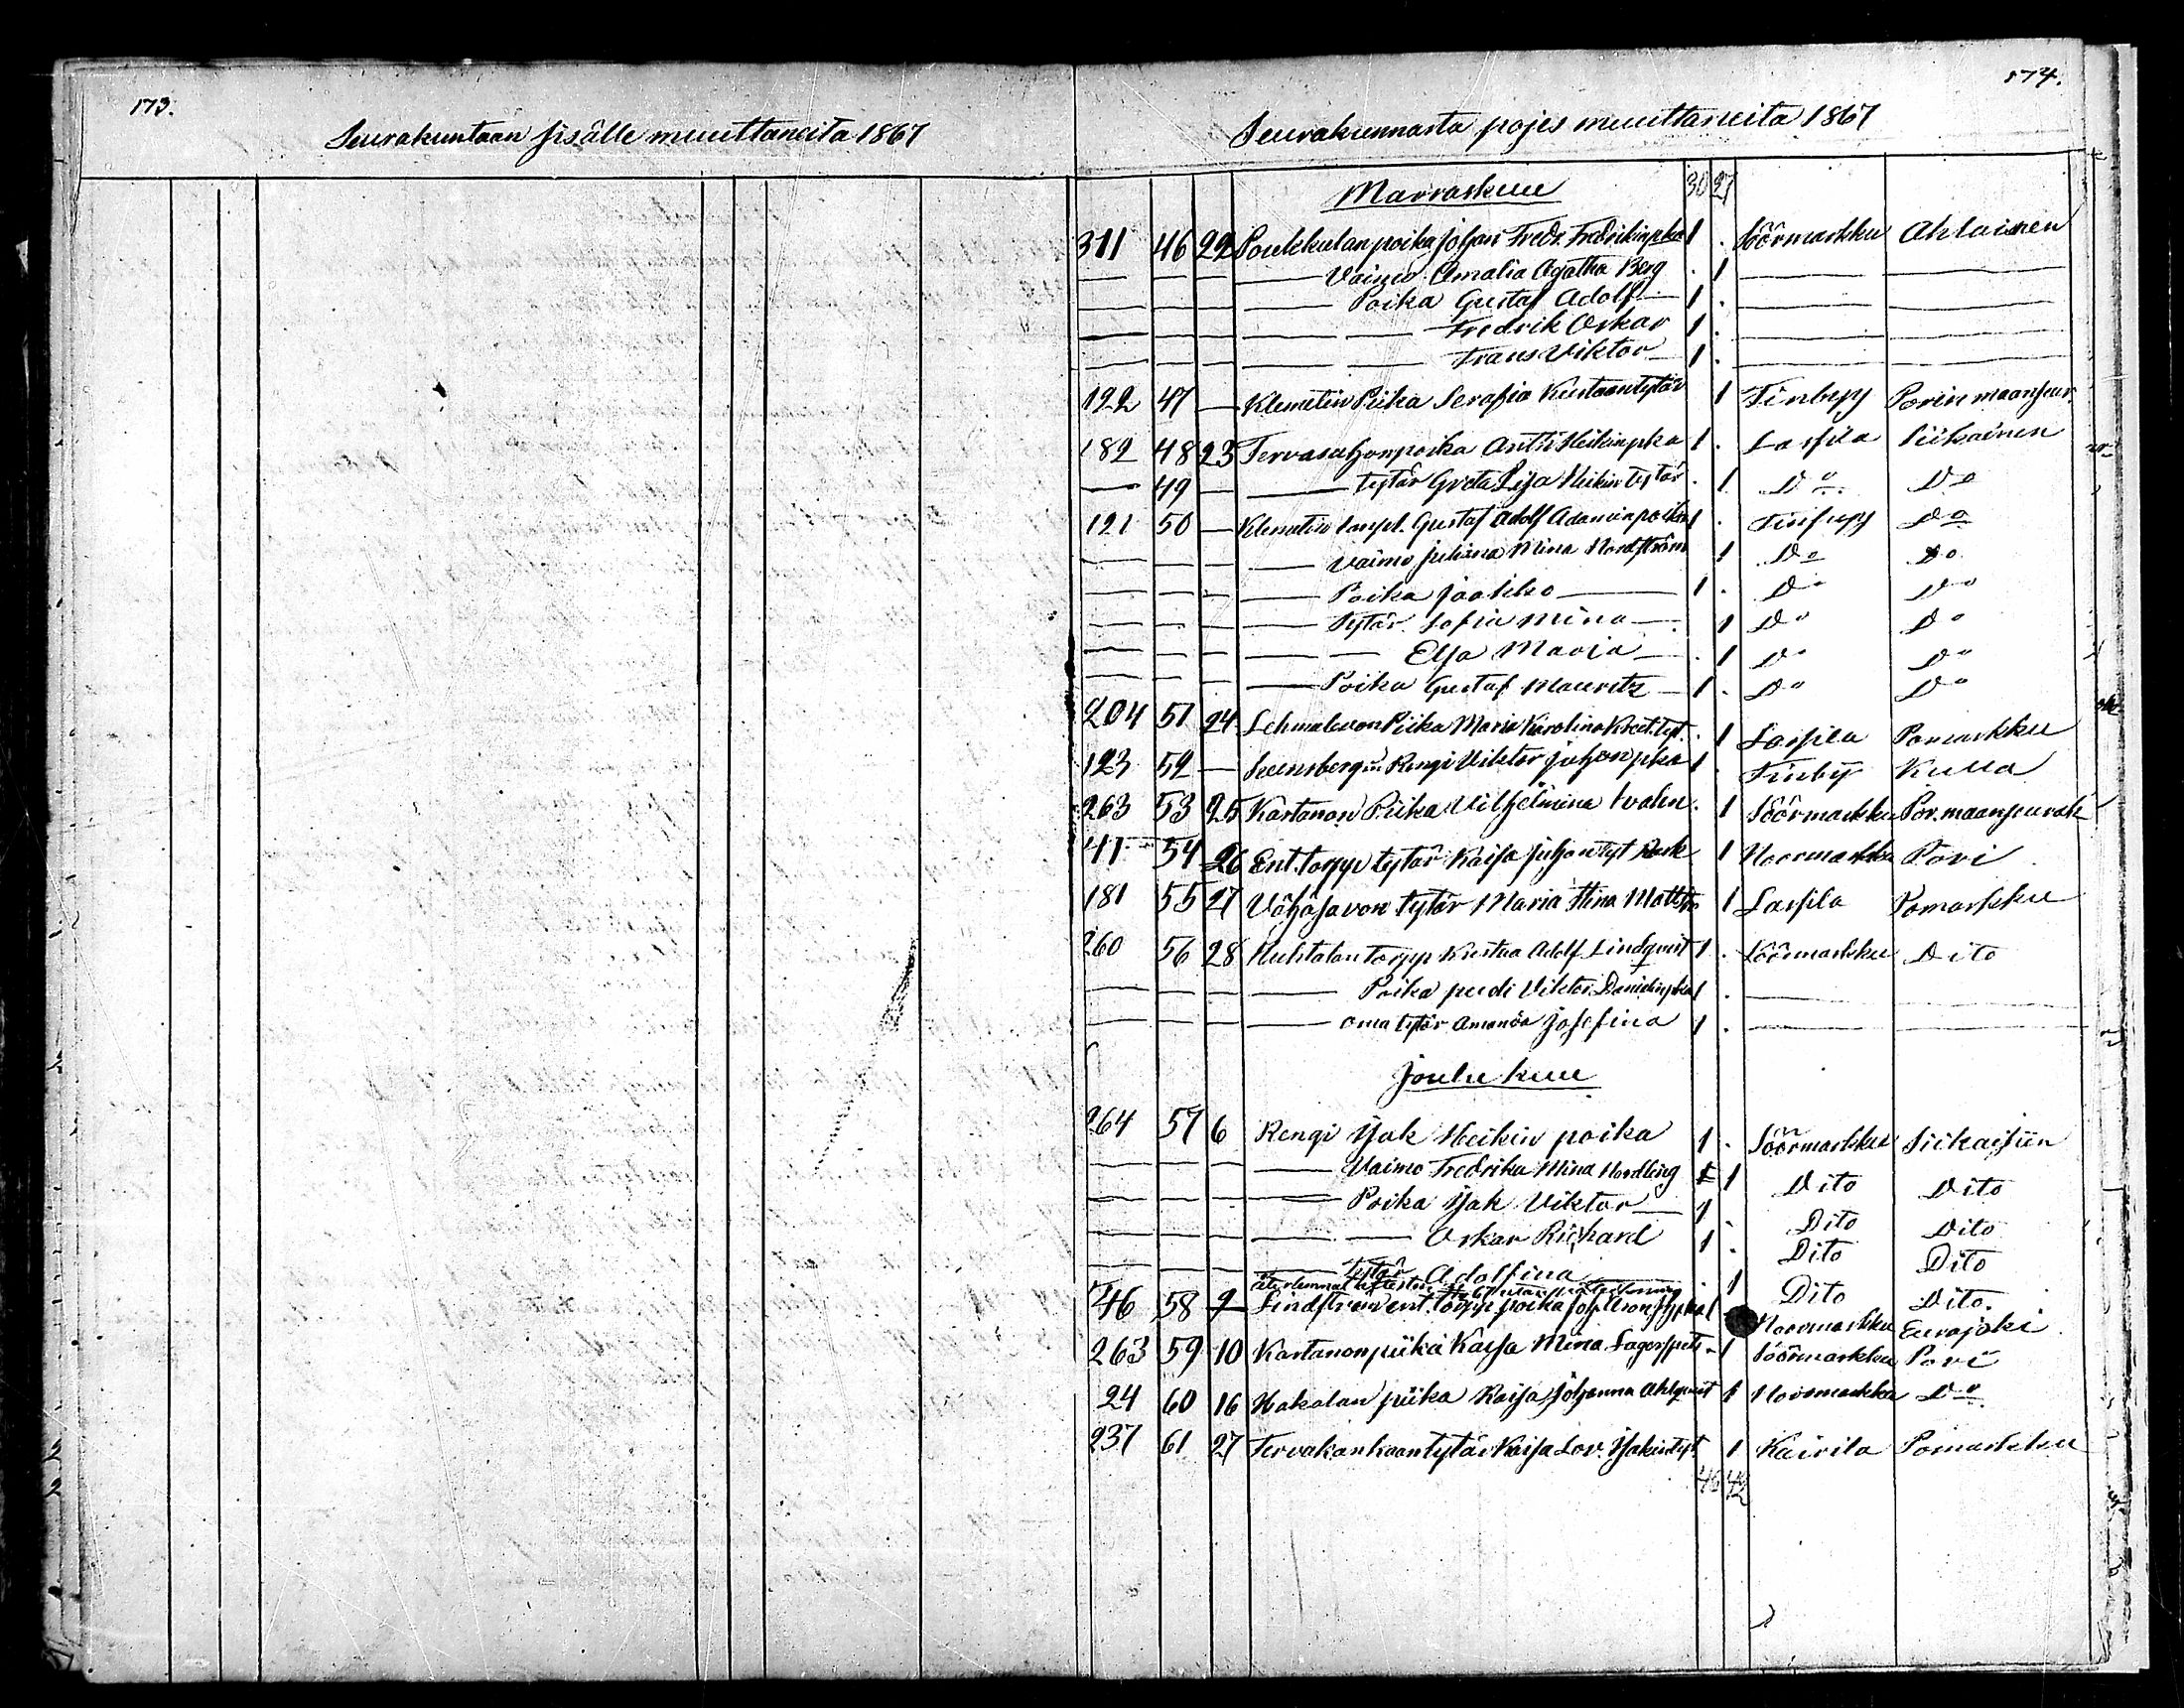 173.
Seurakuntaan sisälle muuttaneita 1867
174.
Seurakunnasta pojes muuttaneita 1867
Marraskuu 30 27
311 46 22 Poukkulan poika Johan Fredr. Fredrikinpka 1 . Söörmarkku Ahlainen
— — — — Vaimo Amalia Agatha Berg . 1 — —
— — — — Poika Gustaf Adolf — 1 . — —
— — — — — Fredrik Oskar 1 . — —
— — — — — Frans Viktor — 1 . — —
122 47 — Klemetin Piika Serafia Kustaantytär 1 Finbyy Porin maanseur.
182 48 23 Tervasahon poika Antti Heikinpka 1 . Lassila Siikainen
— 49 — — tytär Greta Lisa Heikin tytär . 1 Do Do
121 50 — Klemetin Gustaf Adolf Adamin poika 1 . Do
— — — — Vaimo Juliana Mina Nordström 1 Do Do
— — — — Poika Jaakko — 1 . Do Do
— — — — Tytär Sofia Mina — . 1 Do Do
— — — — — Elsa Maria — . 1 Do Do
— — — — Poika Gustaf Mauritz — 1 . Do Do
204 51 24 Piika Maria Karolina tyt. . 1 Lassila Pomarkku
123 52 — Rengi Viktor Juhonpka 1 . Finby Kulla
263 53 25 Kartanon Piika Vilhelmina . 1 Söörmarkku Por. maanseurak
41 54 26 Ent. torpp tytär Kaisa Juhontyt 1 Noormarkku Pori
181 55 27 Vähäsavon tytär Maria Stina Mattsto 1 Lassila Pomarkku
260 56 28 Huhtalan torpp Kustaa Adolf Lindqvist 1 . Söörmarkku Dito
— — — — Poika Viktor 1 . — —
— — — — oma tytär Amanda Josefina 1 . — —
Joulukuu
264 57 6 Rengi Isak Heikin poika 1 . Söörmarkku Siikaisiin
— — — — Vaimo Fredrika Mina Nordling 1 Dito Dito
— — — — Poika Isak Viktor — 1 . Dito Dito
— — — — — Oskar Richard 1 . Dito Dito
— — — — tytär Adolfina . 1 Dito Dito.
46 58 9 Lindström ent. torpp poika 1 Noormarkku Eurajoki
263 59 10 Kartanon piika Kaisa Mina . 1 Söörmarkku Pori
24 60 16 Hakalan piika Kaisa Johanna Ahlqvist 1 Noormarkku Do
237 61 27 Tervakankaan tytär Kaisa Lov. Isakintyt 1 Kairila Pomarkku
46 42